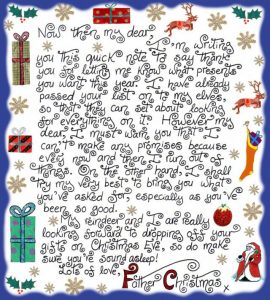 Now then my dear, I'm writing
you this quick note to say thank
you for letting me know what presents
you want this year. I have already
passed your list on to my elves,
so that they can set about looking
for everything on it! However my
dear, I must warn you that I
can't make any promises because
every now and then I run out of
things. On the other hand, I shall
try my very best to bring you what
you've asked for, especially as you've
been so good.
My reindeer and I are really
looking forward to dropping off your
gifts on Christmas Eve, so do make
sure you're sound asleep!
Lots of love,
Father Christmas